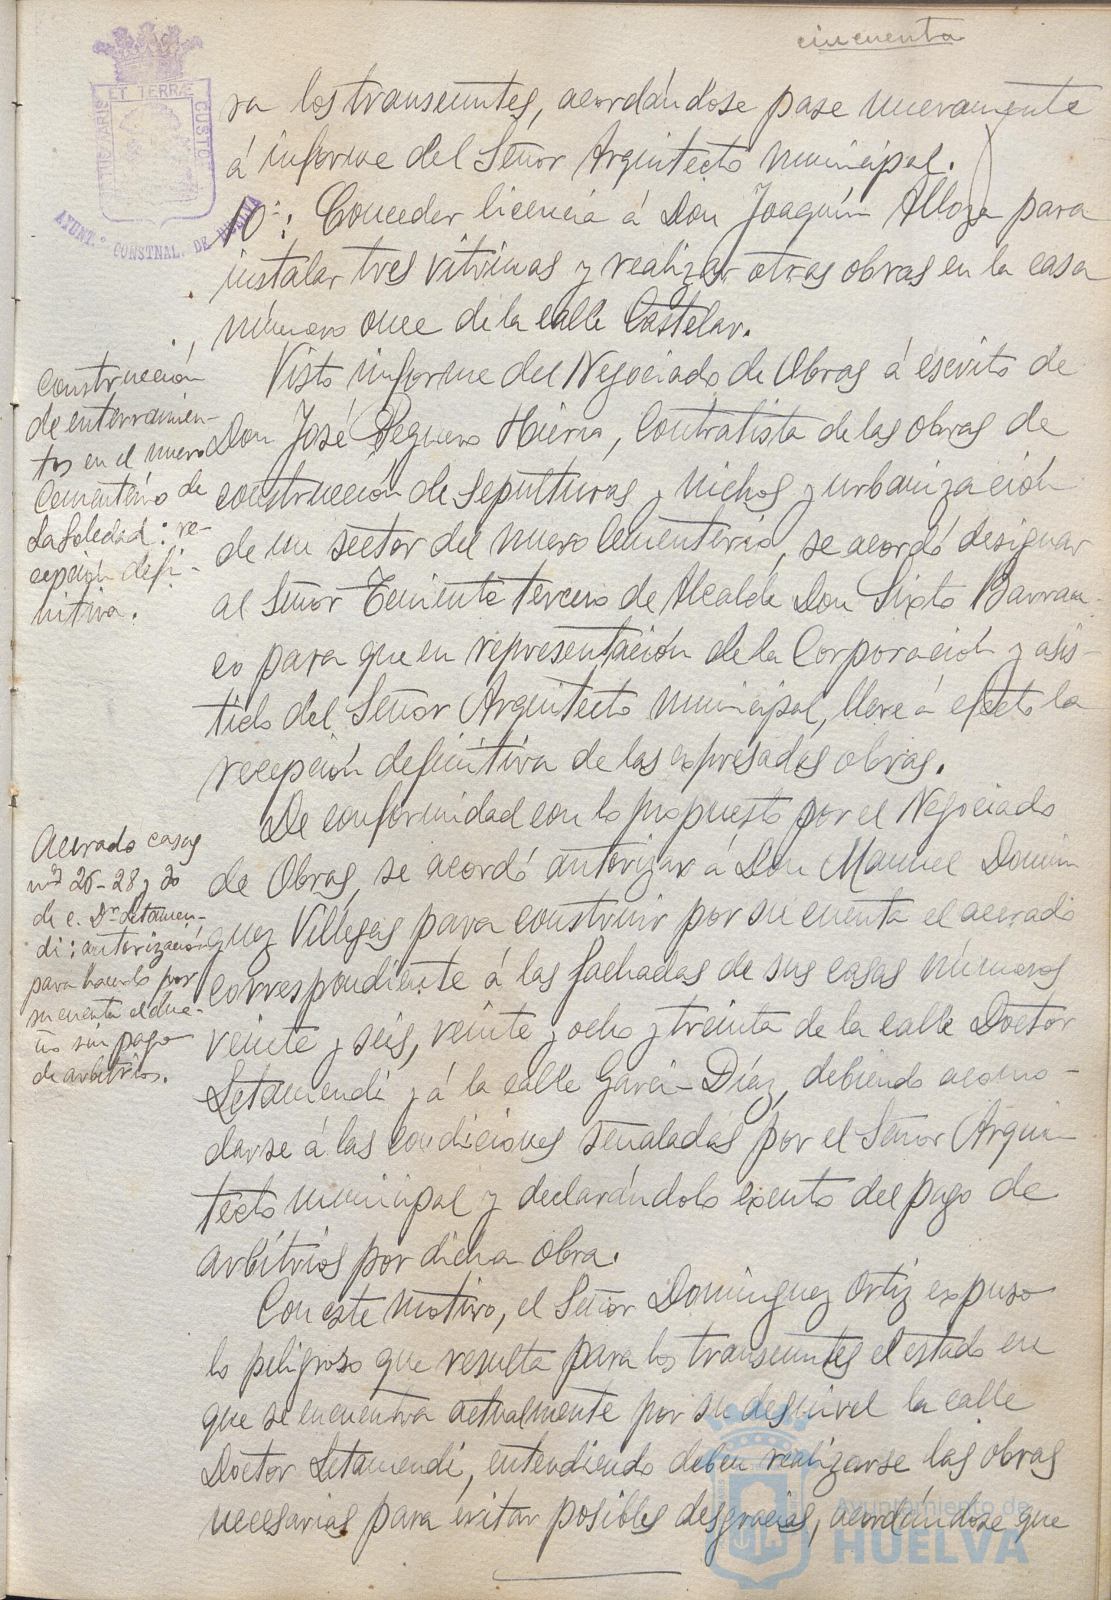 cincuenta
ra los transeuntes, acordándose pase nuevamente
á informe del Señor Arquitecto municipal.
10º: Conceder licencia á Don Joaquín Alloza para
instalar tres vitrinas y realizar otras obras en la casa
número once de la calle Castelar.
Construcción
de enterramien-
tos en el nuevo
Cementerio de
La Soledad: re-
cepción defi-
nitiva.
Visto informe del Negociado de Obras á escrito de
Don José Peguero Hierro, Contratista de las obras de
construcción de sepulturas y nichos y urbanización
de un sector del nuevo Cementerio, se acordó designar
al Señor Teniente tercero de Alcalde Don Sixto Barran-
co para que en representación de la Corporación y asis-
tido del Señor Arquitecto municipal, lleve á efecto la
recepción definitiva de las expresadas obras.
Acerado casas
nos 26-28 y 30
de c. Dr. Letamen-
di: autorización
para hacerlo por
su cuenta el due-
ño sin pago
de arbitrios.
De conformidad con lo propuesto por el Negociado
de Obras, se acordó autorizar á Don Manuel Domín
guez Villegas para construir por su cuenta el acerado
correspondiente á las fachadas de sus casas números
veinte y seis, veinte y ocho y treinta de la calle Doctor
Letamendi y á la calle García Díaz, debiendo acomo-
darse á las condiciones señaladas por el Señor Arqui-
tecto municipal y declarándolo exento del pago de
arbitrios por dicha obra.
Con este motivo, el Señor Domínguez Ortiz expuso
lo peligroso que resulta para los transeuntes el estado en
que se encuentra actualmente por su desnivel la calle
Doctor Letamendi, entendiendo deben realizarse las obras
necesarias para evitar posibles desgracias, acordándose que
ET TERRÆ
CUSTO
AYUNT.º CONSTNAL. DE HUELVA
Ayuntamiento de
HUELVA